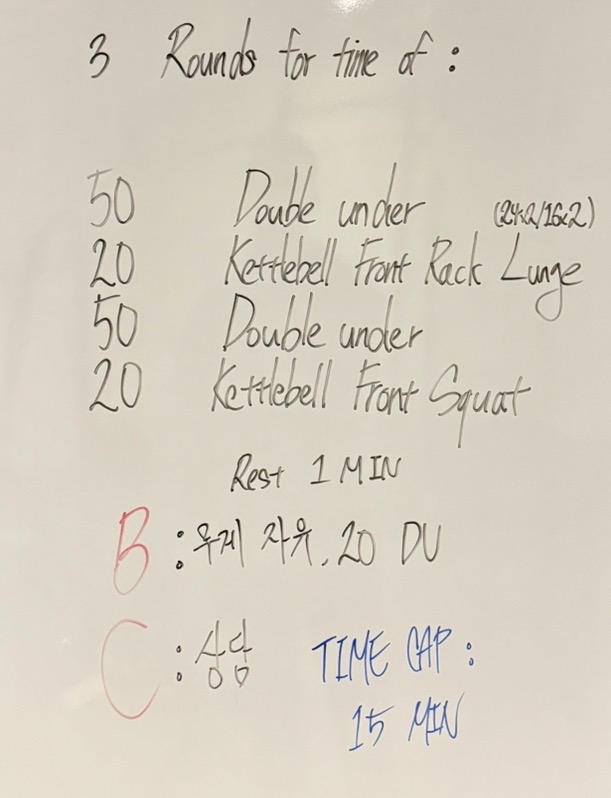 3 Rounds for time of :
50 Double under (24x2/16x2)
20 Kettlebell Front Rack Lunge
50 Double under
20 Kettlebell Front Squat
Rest 1 MIN
B : 무게 자유, 20 DU
C : 상담 TIME CAP :
15 MIN